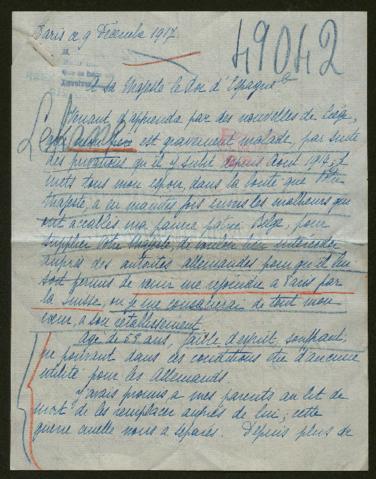 Paris ce 9 Décembre 1917.
49042
A sa Majesté le Roi d'Espagne
Venant d'apprendre par des nouvelles de Liège,
est gravement malade, par suite
des privations qu'il y subit depuis Août 1914, je
mets tous mon espoir, dans la bonté que Votre
Majesté, a eu maintes fois envers les malheurs qui
ont accablés ma pauvre patrie Belge, pour
supplier Votre Majesté, de vouloir bien intercéder
auprès des autorités allemandes pour qu'il lui
soit permis de venir me rejoindre à Paris par
la Suisse, où je me consacrerai de tout mon
cœur, à son rétablissement.
Agé de 59 ans, faible d'esprit, souffrant;
ne pouvant dans ces conditions être d'aucune
utilité pour les Allemands.
J'avais promis à mes parents au lit de
mort de les remplacer auprès de lui; cette
guerre cruelle nous a séparés. Depuis plus de